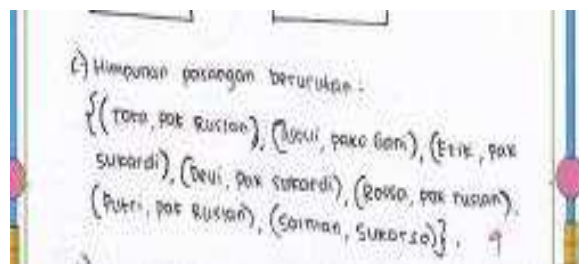 (-) Himpunan pasangan berurutan :
{(Toto, pak Ruslan), (, pak Gani), (Erik, pak
Sukardi), (Dewi, pak Sukardi), (Rossa, pak ruslan),
(Putri, pak Ruslan), (Saiman, Sukarso)}.